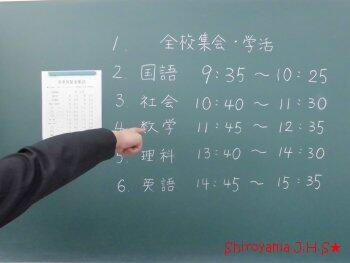 1. 全校集会・学活
2. 国語 9:35 〜 10:25
3 社会 10:40 〜 11:30
4 数学 11:45 〜 12:35
5 理科 13:40 〜 14:30
6. 英語 14:45 〜 15:35
Shiroyama J.H.S★